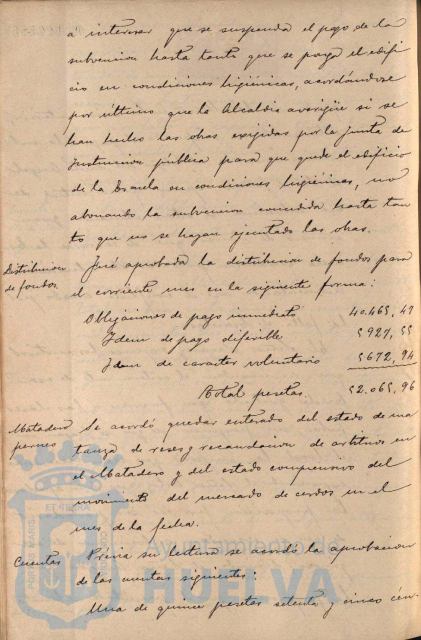 á interesar que se suspenda el pago de la
subvencion hasta tanto que se ponga el edifi
cio en condiciones higiénicas, acordándose
por último que la Alcaldia averigüe si se
han hecho las obras exigidas por la Junta de
Instruccion pública para que quede el edificio
de la Escuela en condiciones higiénicas, no
abonando la subvencion concedida hasta tan
to que no se hagan ejecutado las obras.
Distribucion de fondos
Fué aprobada la distribucion de fondos para
el corriente mes en la siguiente forma:
Obligaciones de pago inmediato 40.465,47
Idem de pago diferible 5927,55
Idem de caracter voluntario 5672,94
Total pesetas 52.065,96
Matadero
Se acordó quedar enterado del estado de ma
tanza de reses y recaudacion de arbitrios en
el Matadero y del estado comprensivo del
movimiento del mercado de cerdos en el
mes de la fecha.
Cuentas
Prévia su lectura se acordó la aprobacion
de las cuentas siguientes:
Una de quince pesetas setenta y cinco cén
Ayuntamiento de
HUELVA